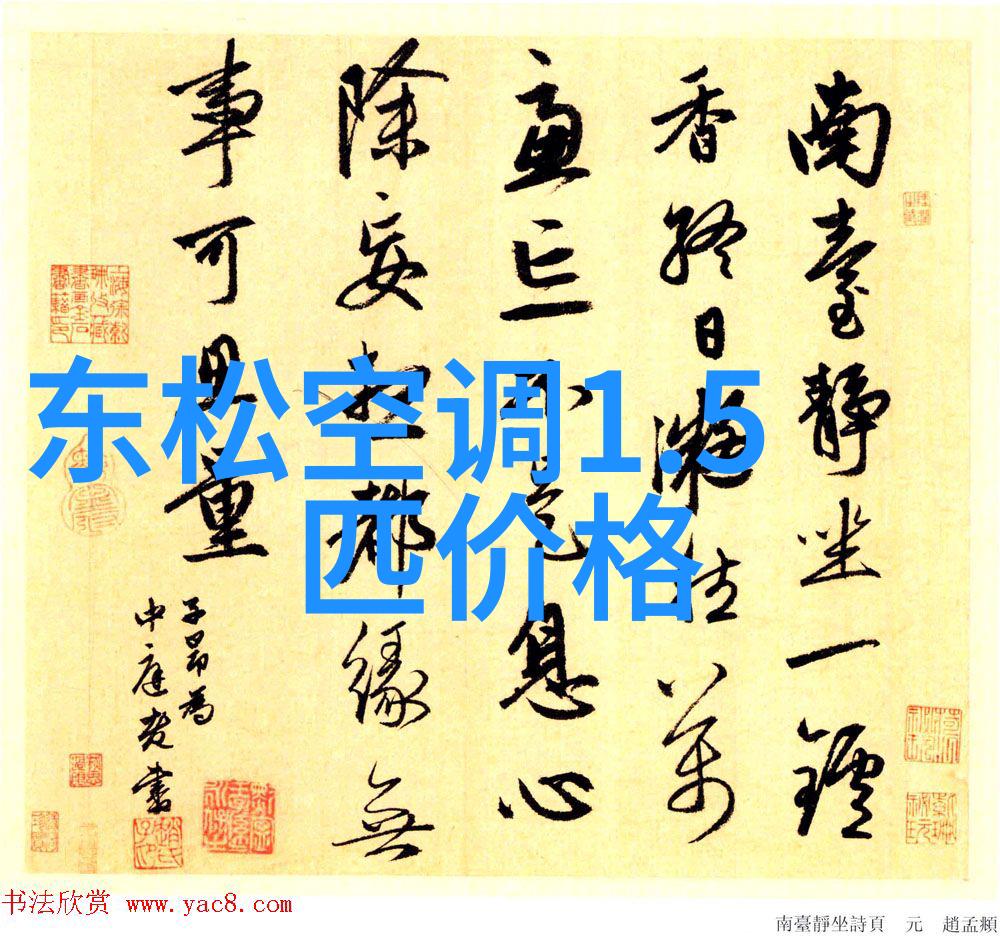 南臺靜坐一鑪
香終日凝然萬
慮亡不是息心
除妄想都緣無
事可思量
子昂為
中庭老書
东松空调1.5
匹价格
书法欣赏 www.yac8.com
南臺靜坐詩頁 元 趙孟頫